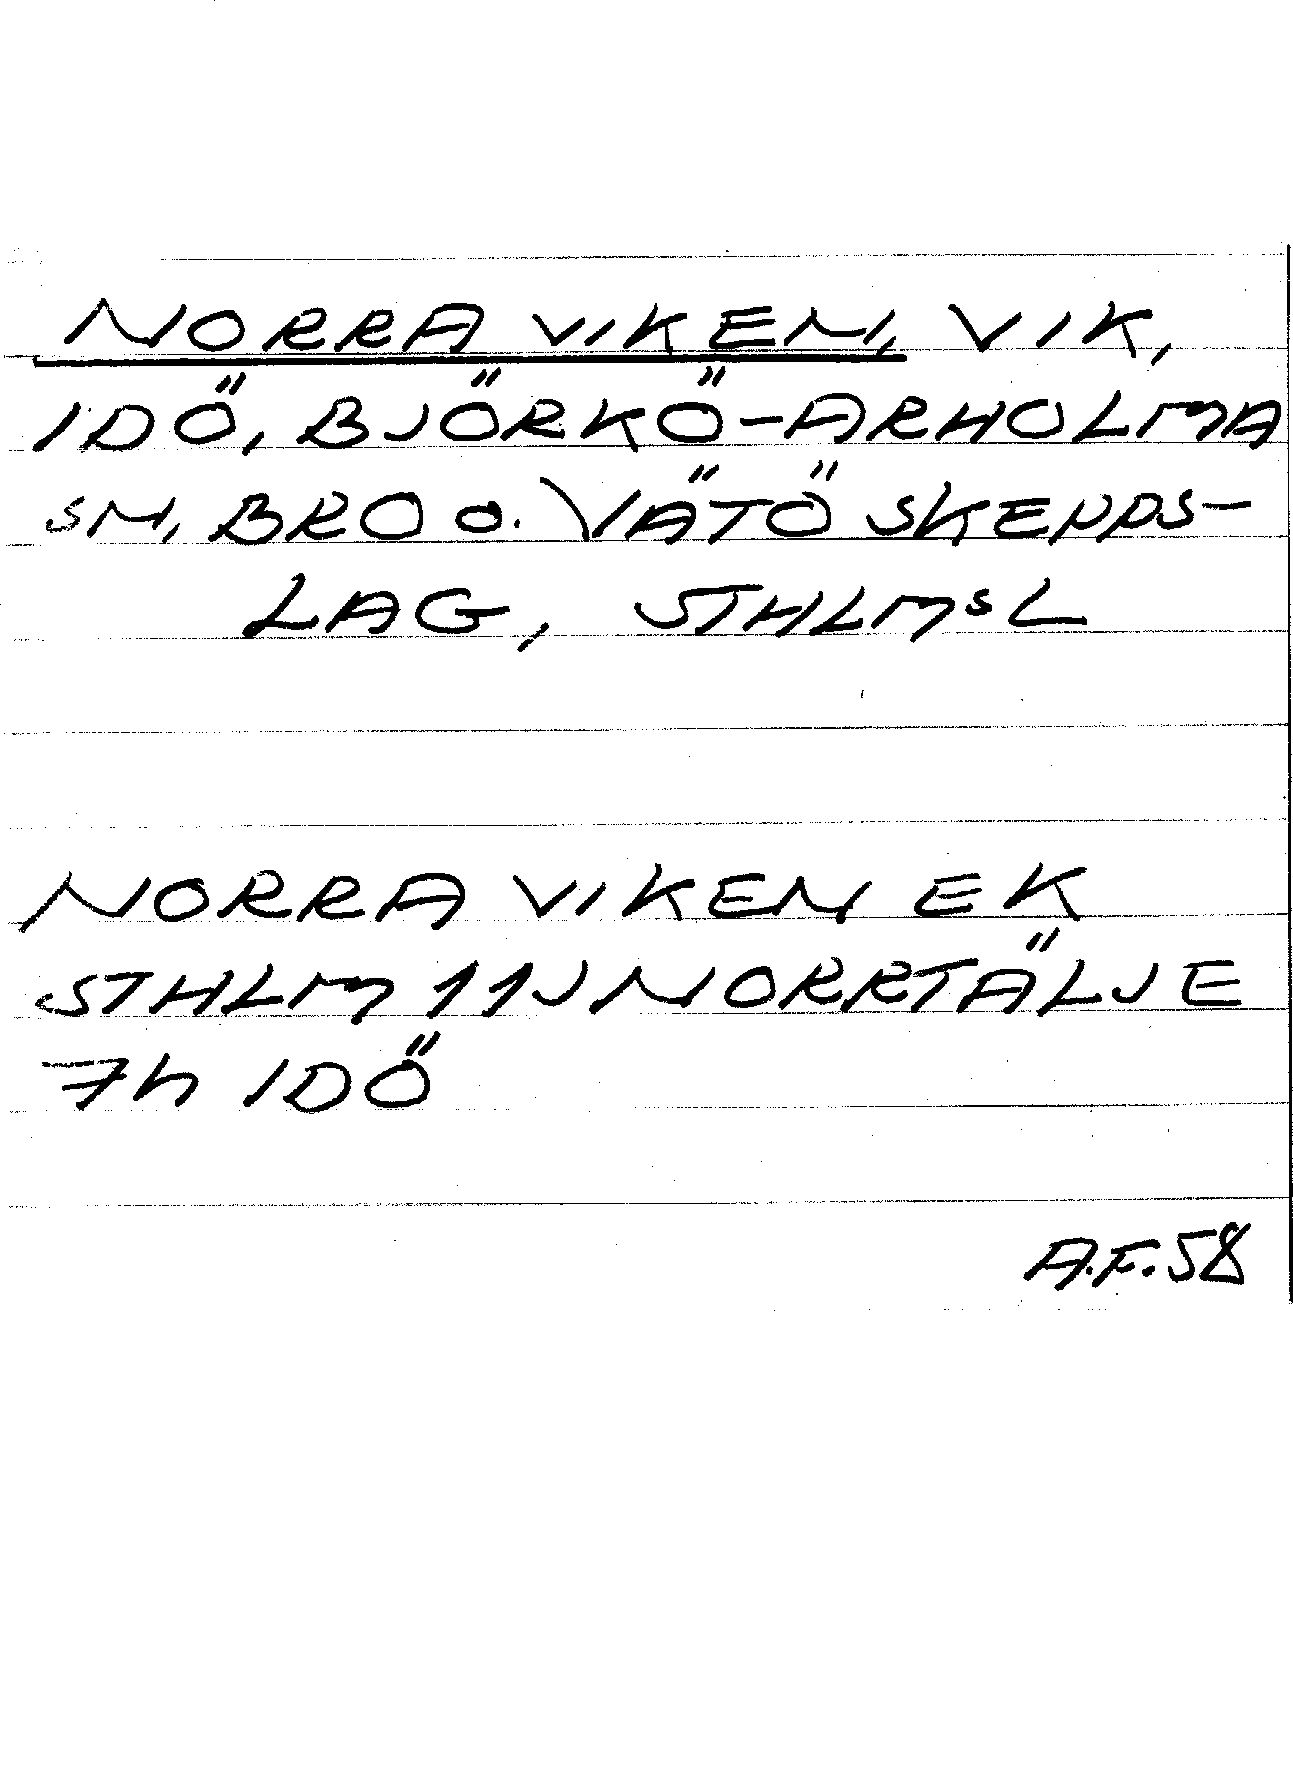 NORRA VIKEN, VIK,
IDÖ, BJÖRKÖ-ARHOLMA
SN, BRO O. VÄTÖ SKEPPS-
LAG, STHLMS L
NORRA VIKEN EK
STHLM 11J NORRTÄLJE
7h IDÖ
A.F. 58